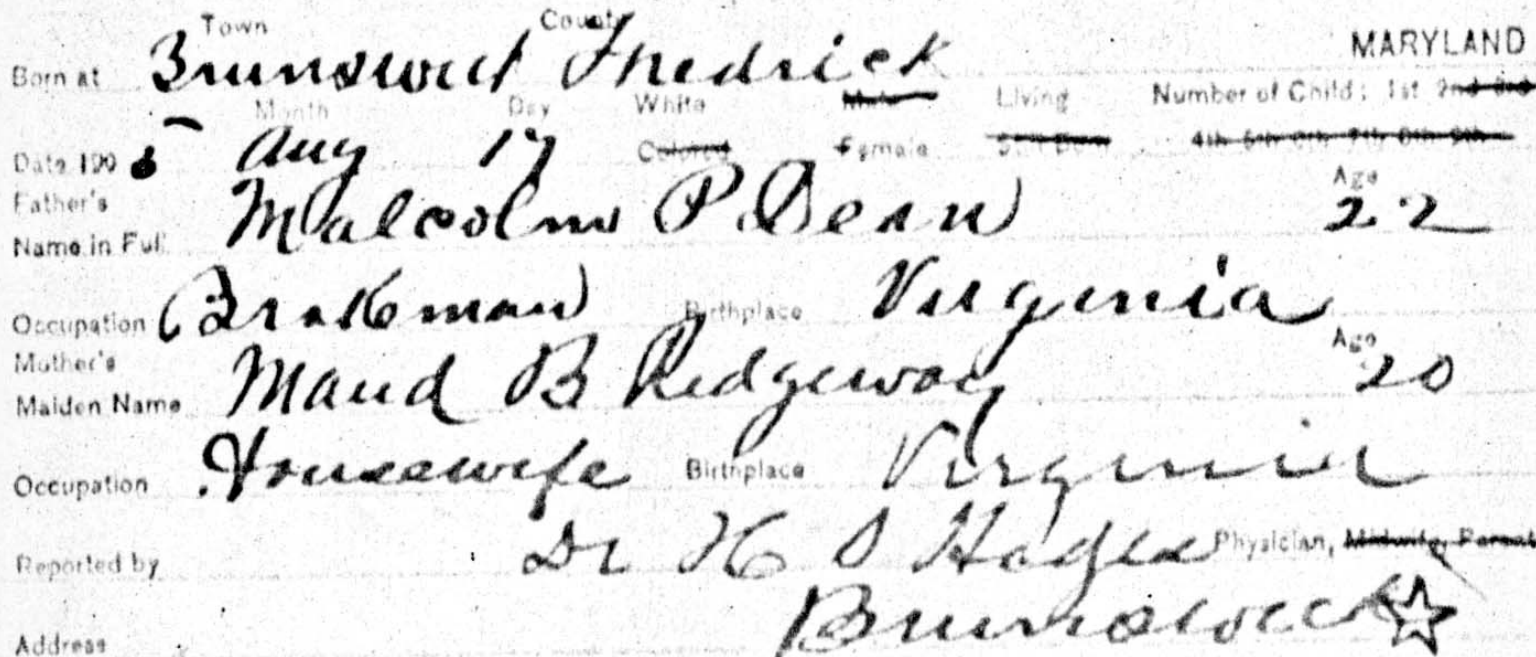 Town County
Born at Brunswick Fredrick MARYLAND
Month Day White Male Living Number of Child: 1st 2nd 3rd
Date 190 5 Aug 17 Colored Female Still Born 4th 5th 6th 7th 8th 9th
Father's Age
Name in Full Malcolm P. Dean 22
Occupation Brakeman Birthplace Virginia
Mother's Age
Maiden Name Maud B Ridgeway 20
Occupation Housewife Birthplace Virginia
Reported by Dr H S Hedges Physician, Midwife, Parent
Address Brunswick